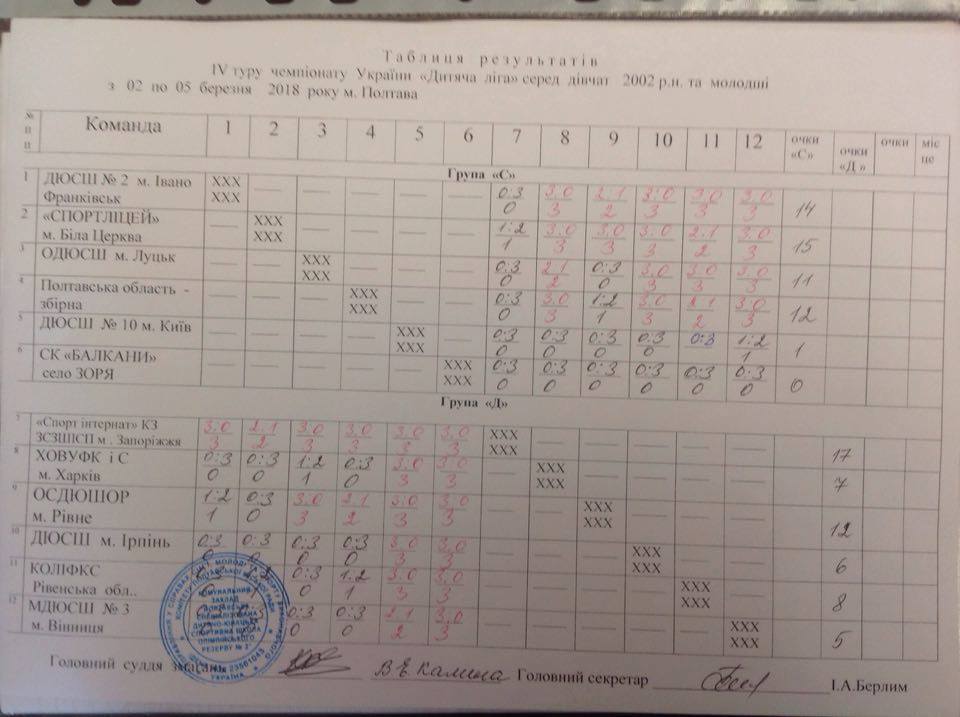 Таблиця результатів
IV туру чемпіонату України «Дитяча ліга» серед дівчат 2002 р.н. та молодші
з 02 по 05 березня 2018 року м. Полтава
№ п п Команда 1 2 3 4 5 6 7 8 9 10 11 12 очки «С» очки «Д» очки міс це
Група «С»
1 ДЮСШ № 2 м. Івано XXX — — — — — 0:3 3:0 2:1 3:0 3:0 3:0
Франківськ XXX 0 3 2 3 3 3 14
2 «СПОРТЛІЦЕЙ» — XXX — — — — 1:2 3:0 3:0 3:0 2:1 3:0
м. Біла Церква XXX 1 3 3 3 2 3 15
3 ОДЮСШ м. Луцьк — — XXX — — — 0:3 2:1 0:3 3:0 3:0 3:0
XXX 0 2 0 3 3 3 11
4 Полтавська область - — — — XXX — — 0:3 3:0 1:2 3:0 2:1 3:0
збірна XXX 0 3 1 3 2 3 12
5 ДЮСШ № 10 м. Київ — — — — XXX — 0:3 0:3 0:3 0:3 0:3 1:2
XXX 0 0 0 0 1 1
6 СК «БАЛКАНИ» — — — — — XXX 0:3 0:3 0:3 0:3 0:3 0:3
село ЗОРЯ XXX 0 0 0 0 0 0 0
Група «Д»
7 «Спорт інтернат» КЗ 3:0 2:1 3:0 3:0 3:0 3:0 XXX — — — — —
ЗСЗШІСП м . Запоріжжя 3 2 3 3 3 3 XXX 17
8 ХОВУФК і С 0:3 0:3 1:2 0:3 3:0 3:0 — XXX — — — —
м. Харків 0 0 1 0 3 3 XXX 7
9 ОСДЮШОР 1:2 0:3 3:0 2:1 3:0 3:0 — — XXX — — —
м. Рівне 1 0 3 2 3 3 XXX 12
10 ДЮСШ м. Ірпінь 0:3 0:3 0:3 0:3 3:0 3:0 — — — XXX — —
0 0 0 0 3 3 XXX 6
11 КОЛІФКС 0:3 1:2 3:0 3:0 — — — — XXX —
Рівенська обл.. 0 1 3 3 XXX 8
12 МДЮСШ № 3 0:3 0:3 2:1 3:0 — — — — — XXX
м. Вінниця 0 0 2 3 XXX 5
КОМУНАЛЬНИЙ
ЗАКЛАД
ПОЛТАВСЬКА
СПЕЦІАЛІЗОВАНА
ДИТЯЧО-ЮНАЦЬКА
СПОРТИВНА ШКОЛА
ОЛІМПІЙСЬКОГО
РЕЗЕРВУ № 2
УКРАЇНА
Головний суддя змагань В Є Калина Головний секретар І.А.Берлим